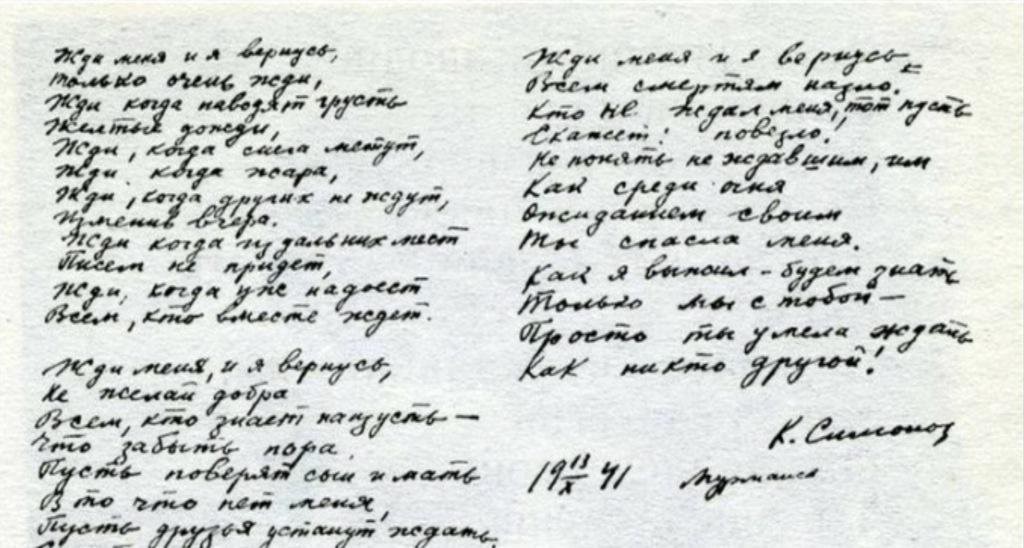 Жди меня и я вернусь,
только очень жди,
Жди когда наводят грусть
Желтые дожди,
Жди, когда снега метут,
Жди когда жара,
Жди, когда других не ждут,
Изменив вчера.
Жди когда из дальних мест
Писем не придет,
Жди, когда уже надоест
Всем, кто вместе ждет.
Жди меня, и я вернусь,
Не желай добра
Всем, кто знает наизусть —
Что забыть пора.
Пусть поверят сын и мать
В то что нет меня,
Пусть друзья устанут ждать,
Жди меня и я вернусь
Всем смертям назло.
Кто не ждал меня, тот пусть
Скажет: повезло!
Не понять не ждавшим, им
Как среди огня
Ожиданием своим
Ты спасла меня.
Как я выжил – будем знать
Только мы с тобой —
Просто ты умела ждать
Как никто другой!
К. Симонов
19 13/X 41 Мурманск